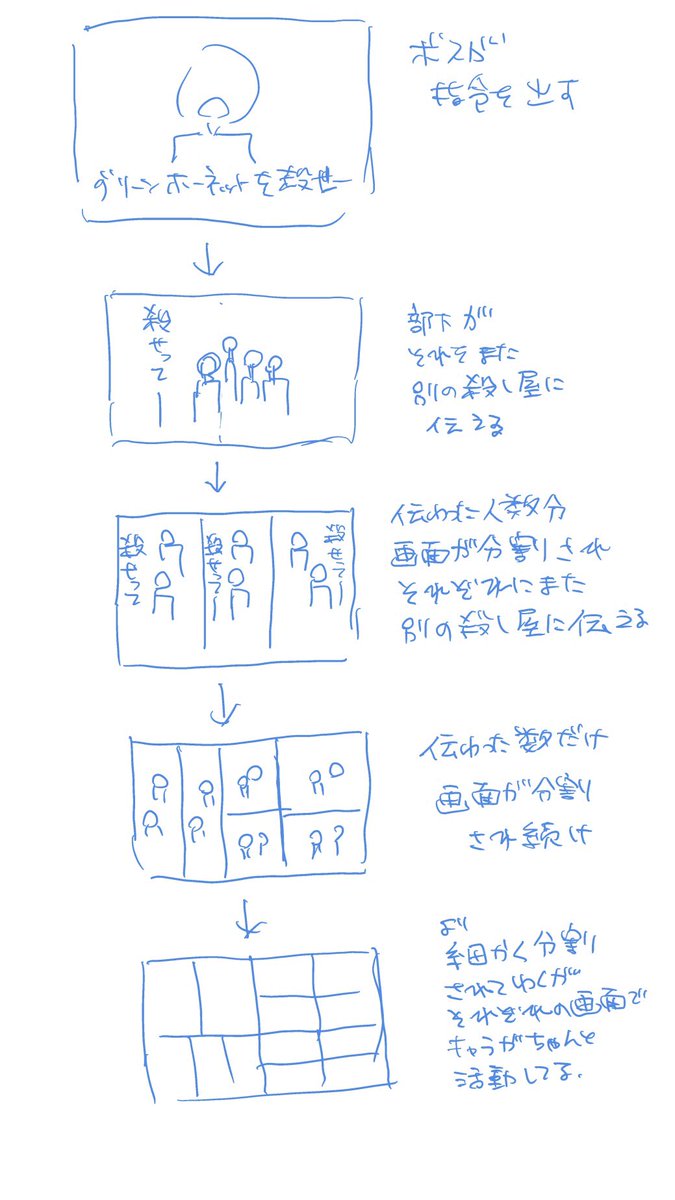 ボスが
指令を出す
グリーンホーネットを殺せー
殺せってー
部下が
それをまた
別の殺し屋に
伝える
殺せって
殺せってー
殺せってー
伝わった人数分
画面が分割され
それぞれにまた
別の殺し屋に伝える
伝わった数だけ
画面が分割
され続け
より
細かく分割
されてわくが
それぞれの画面で
キャラがちゃんと
活動してる.